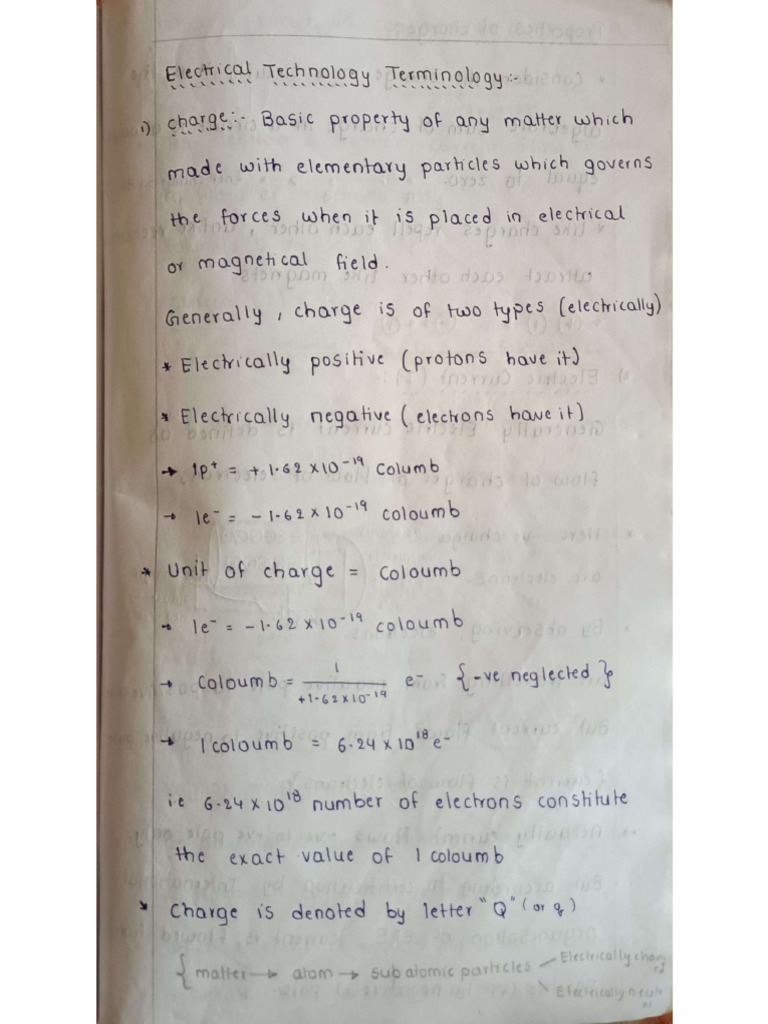 Electrical Technology Terminology:-
1) charge:- Basic property of any matter which
made with elementary particles which governs
the forces when it is placed in electrical
or magnetical field.
Generally, charge is of two types (electrically)
* Electrically positive (protons have it)
* Electrically negative (electrons have it)
→ 1p⁺ = +1.62 × 10⁻¹⁹ Columb
→ 1e⁻ = -1.62 × 10⁻¹⁹ coloumb
* Unit of charge = coloumb
→ 1e⁻ = -1.62 × 10⁻¹⁹ coloumb
→ coloumb = 1 / +1.62×10⁻¹⁹ e⁻ {-ve neglected}
→ 1 coloumb = 6.24 × 10¹⁸ e⁻
i.e 6.24 × 10¹⁸ number of electrons constitute
the exact value of 1 coloumb
* Charge is denoted by letter "Q" (or q)
{ matter → atom → sub atomic particles - Electrically charged
Electrically